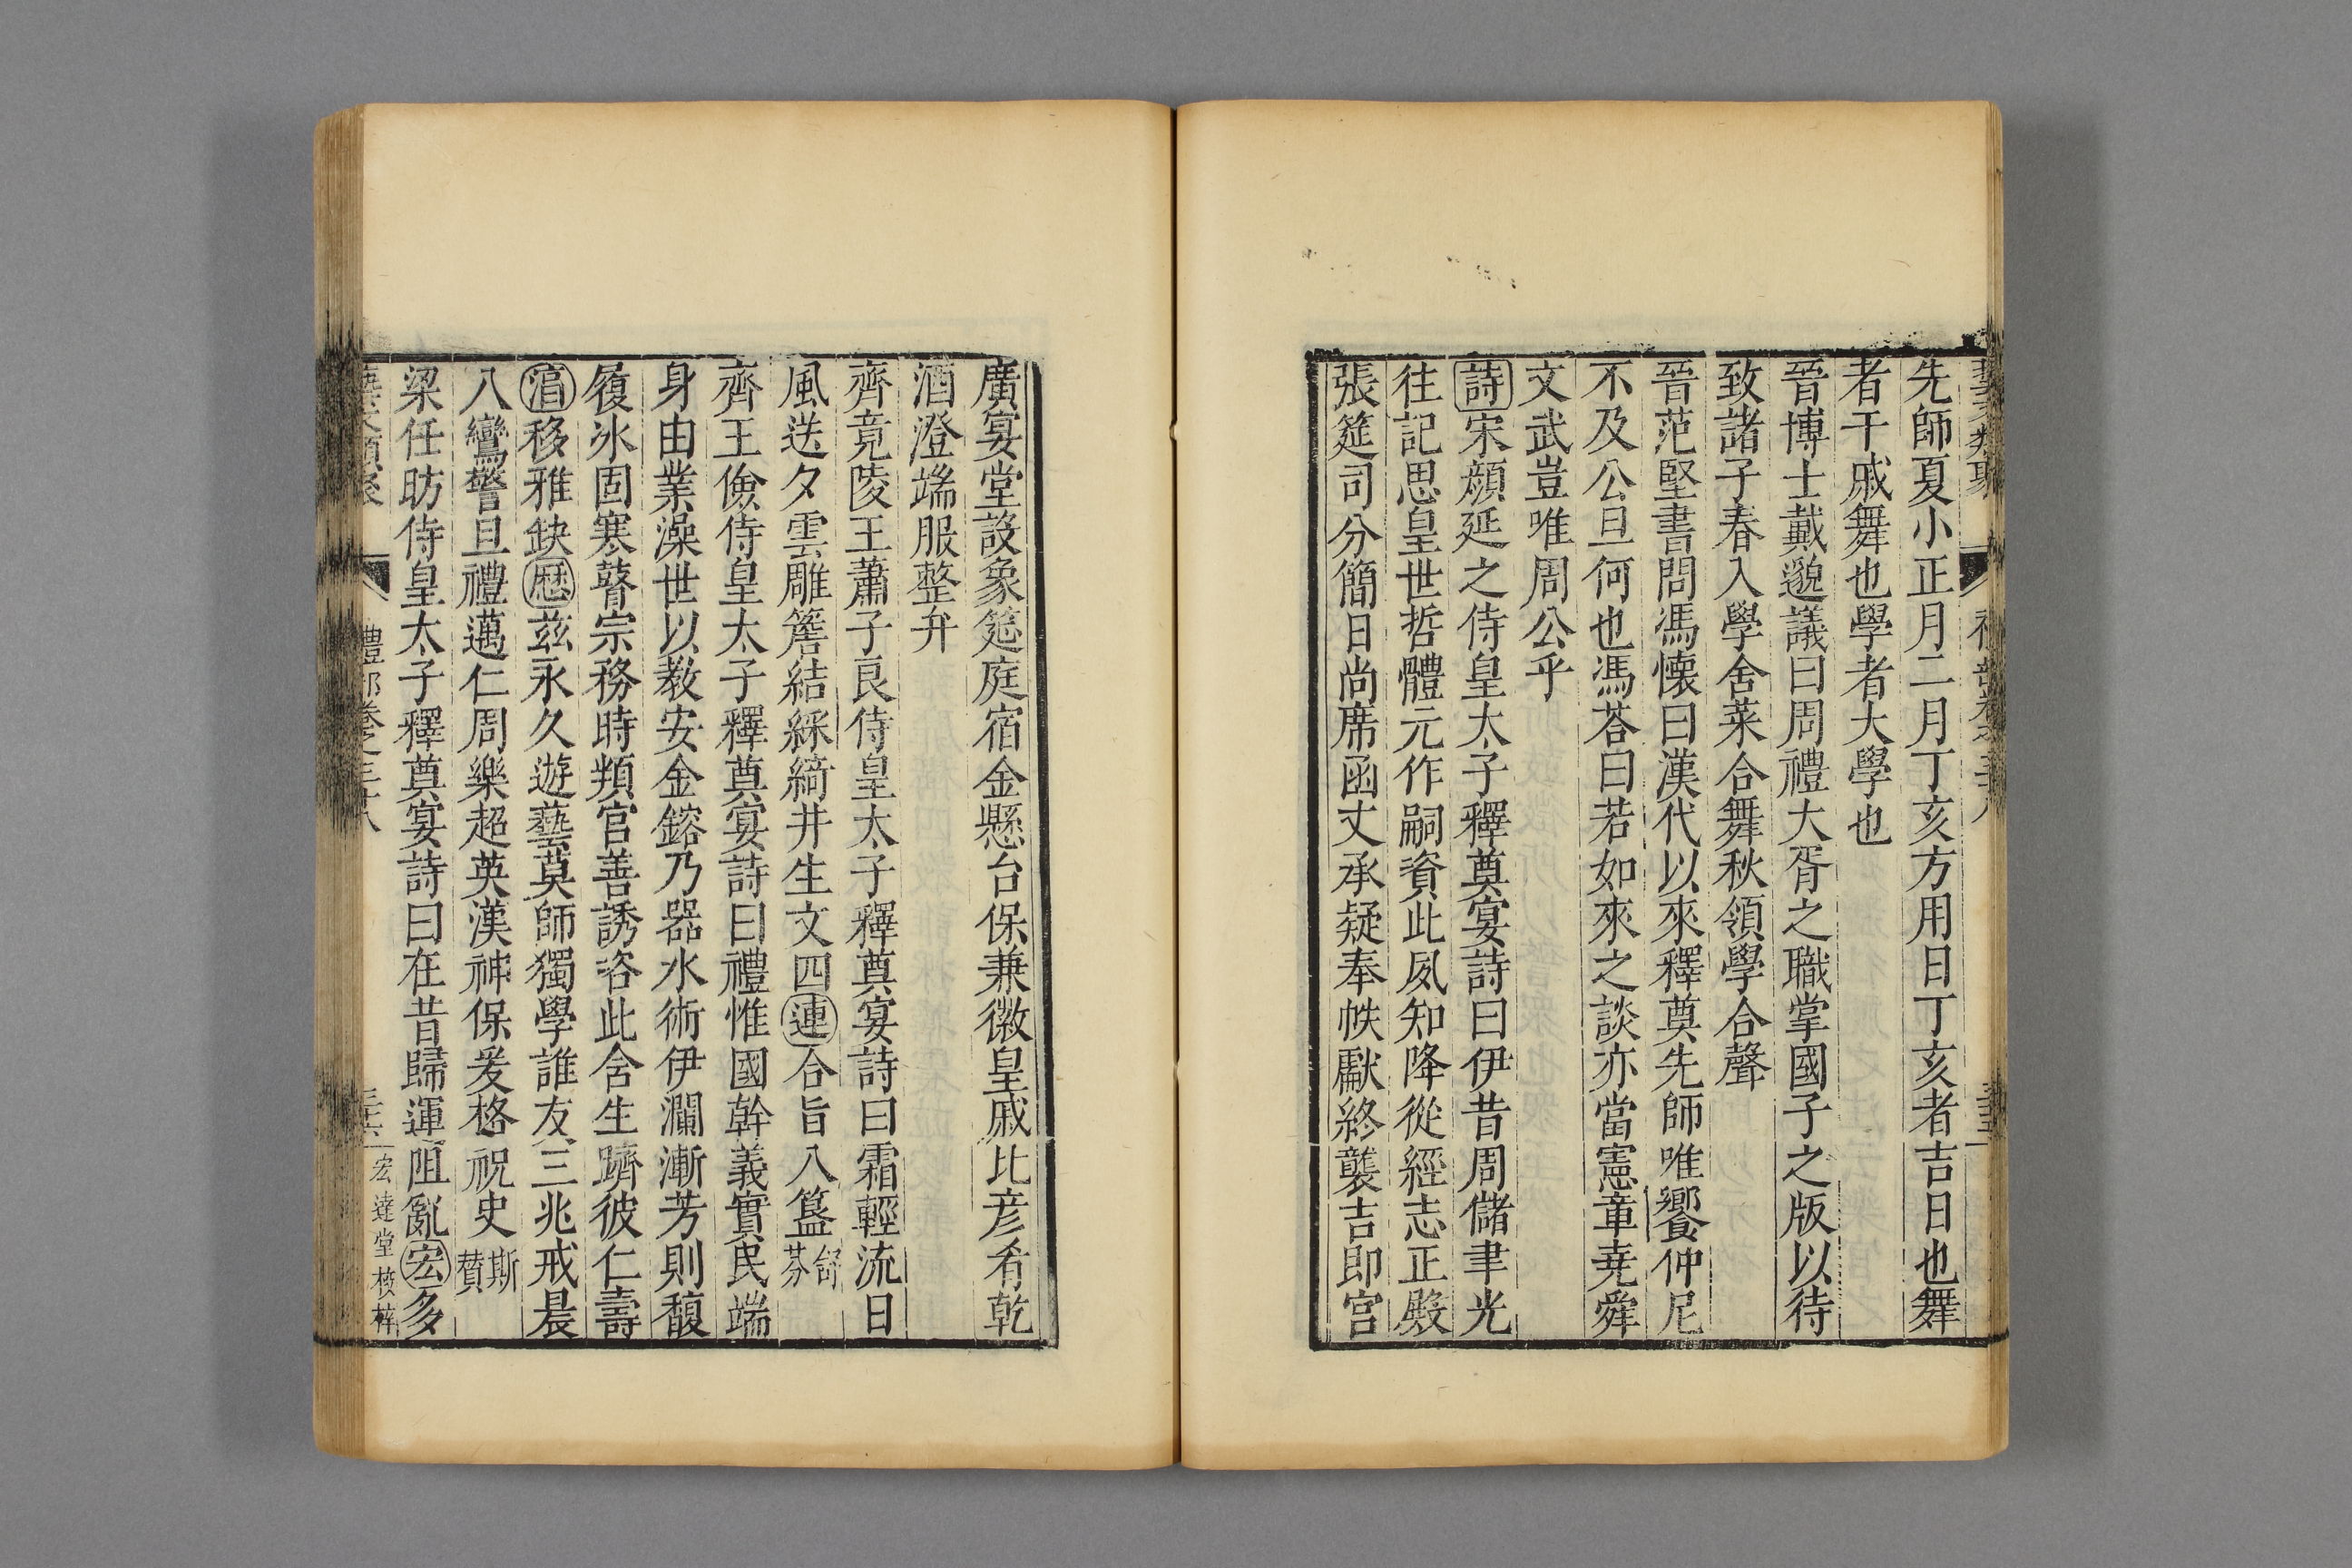 先師夏小正月二月丁亥方用日丁亥者吉日也舞
者干戚舞也學者大學也
晉博士戴邈議曰周禮大胥之職掌國子之版以待
致諸子春入學舍菜合舞秋頒學合聲
晉范堅書問馮懐曰漢代以來釋奠先師唯饗仲尼
不及公旦何也馮荅曰若如來之談亦當憲章堯舜
文武豈唯周公乎
詩宋顔延之侍皇太子釋奠宴詩曰伊昔周儲聿光
往記思皇世哲體元作嗣資此夙知降從經志正殿
張筵司分簡日尚席函丈承疑奉帙獻終襲吉即宫
廣宴堂設象筵庭宿金懸台保兼徽皇戚比彦肴乾
酒澄端服整弁
齊竟陵王蕭子良侍皇太子釋奠宴詩曰霜輕流日
風送夕雲雕簷結綵綺井生文四連合旨八簋舒芬
齊王儉侍皇太子釋奠宴詩曰禮惟國幹義實民端
身由業澡世以敎安金鎔乃器水術伊瀾漸芳則馥
履冰固寒瞽宗務時頖宫善誘咨此含生躋彼仁壽
淯移雅缺歴茲永久遊藝莫師獨學誰友三兆戒晨
八鸞警旦禮邁仁周樂超英漢神保爰格祝史斯賛
梁任昉侍皇太子釋奠宴詩曰在昔歸運阻亂宏多
藝文類聚
禮部卷之三十八
宏達堂校梓